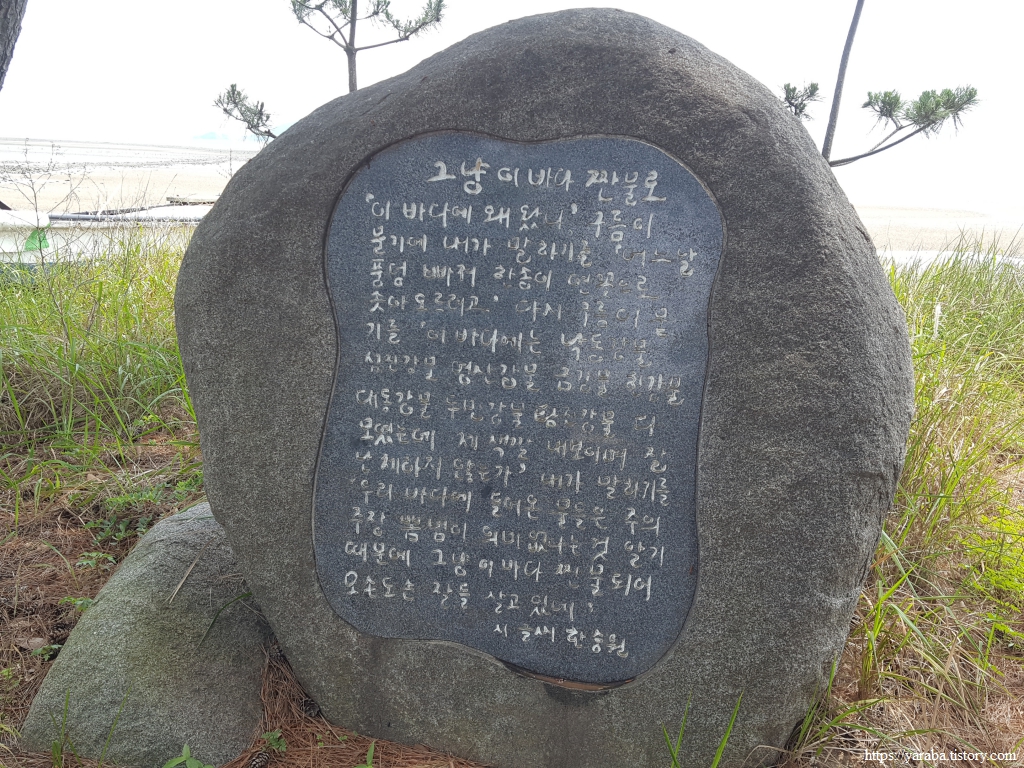 그냥 이 바다 짠물로
'이 바다에 왜 왔너' 구름이
묻기에 내가 말하기를 '어느날
풍덩 빠져 한송이 연꽃으로
솟아오르려고' 다시 구름이 묻
기를 '이 바다에는 낙동강물
섬진강물 영산강물 금강물 한강물
대동강물 두만강물 탐진강물 다
모였는데 제 색깔 내보이며 잘
난 체하지 않는가' 내가 말하기를
'우리 바다에 들어온 물들은 주의
주장 뽐냄이 의미없다는 것 알기
때문에 그냥 이 바다 짠물되어
오손도손 잘들 살고 있네'
시 글씨 한승원
https://yaraba.tistory.com